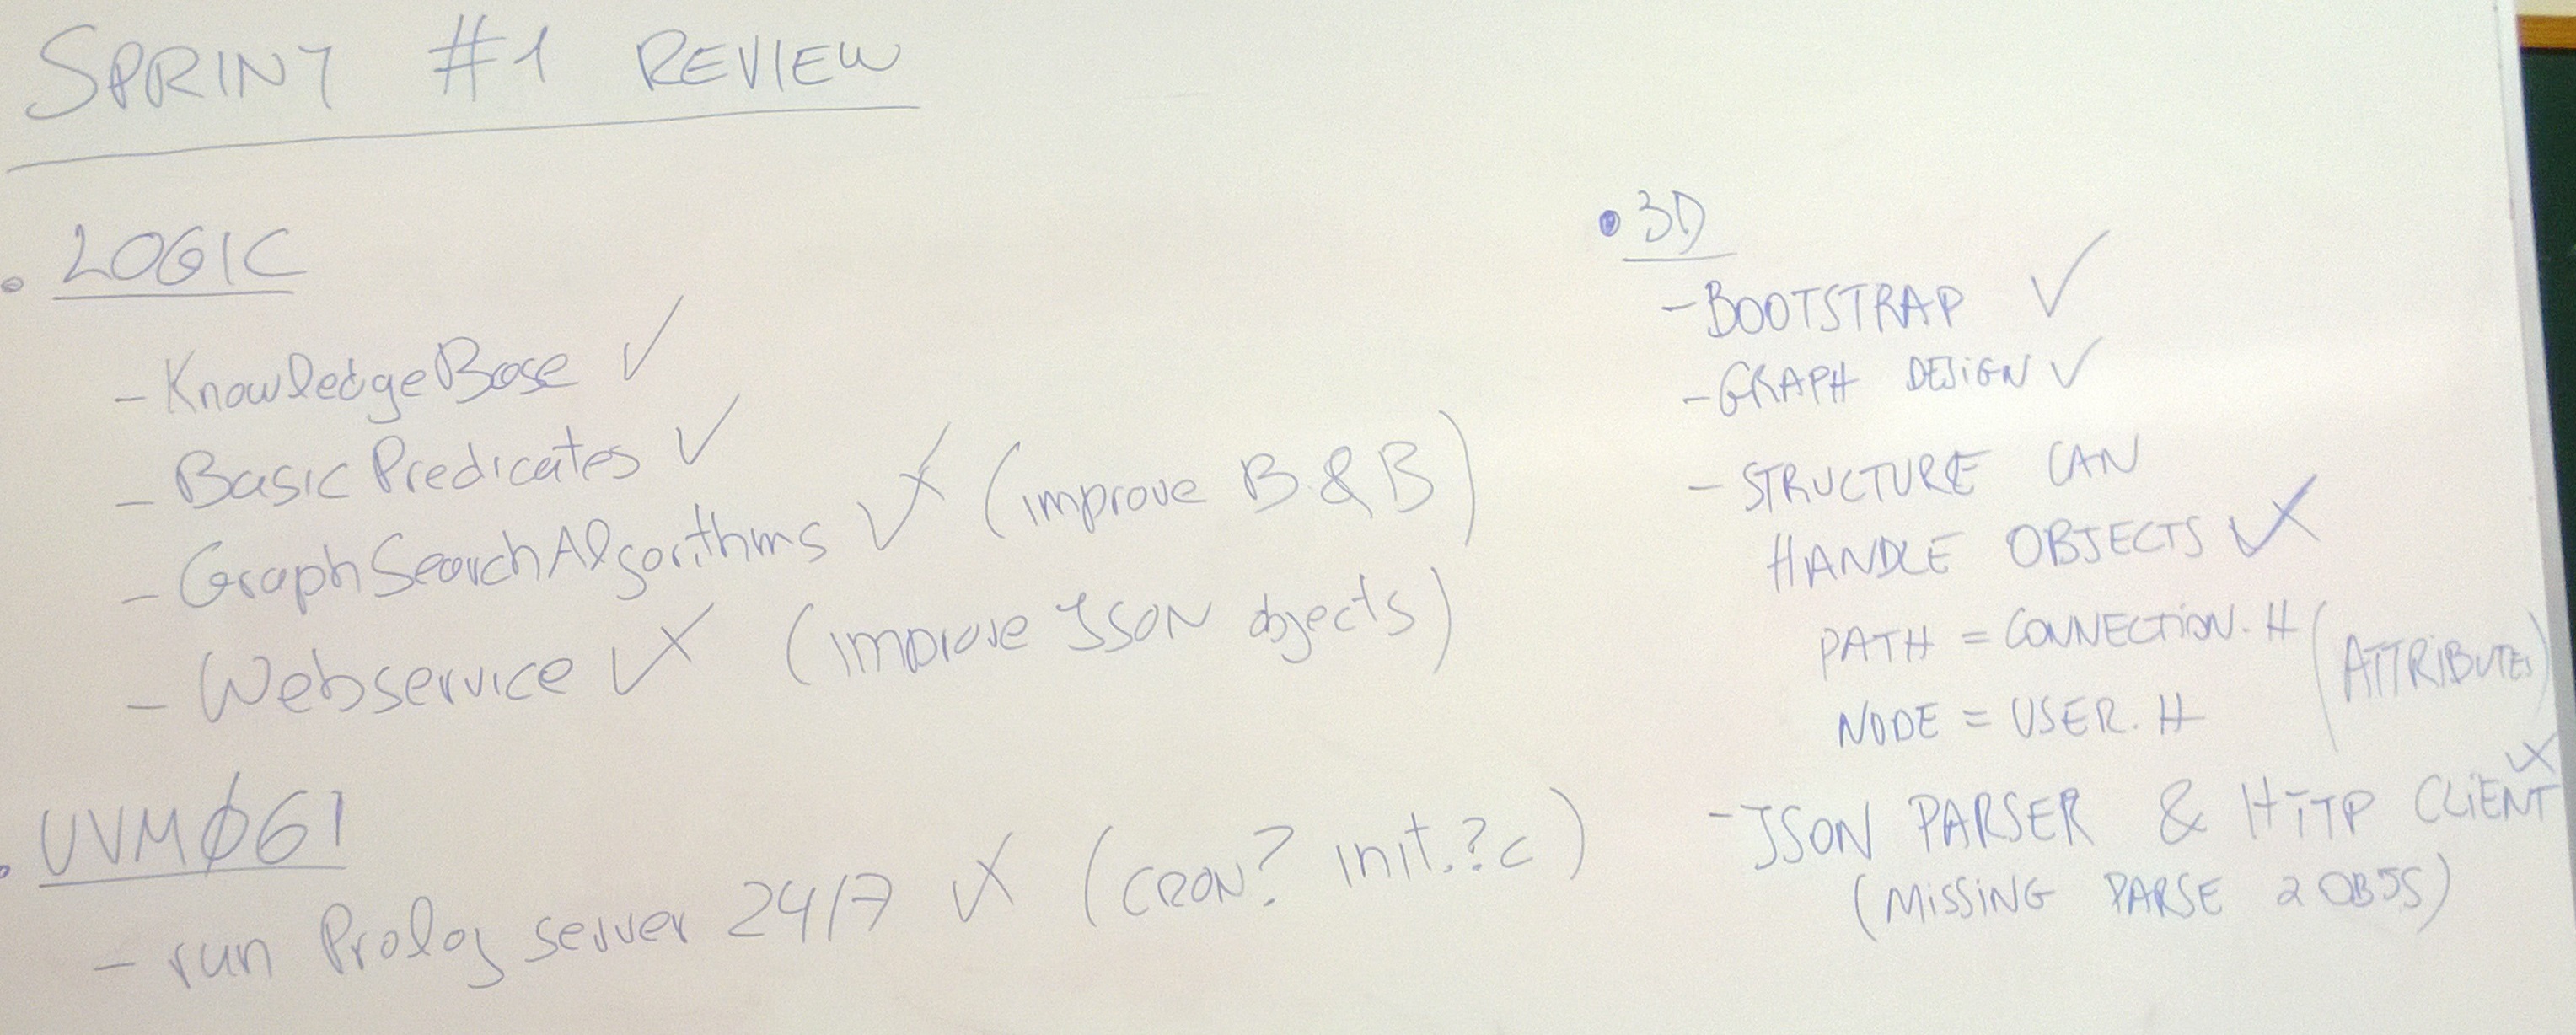 SPRINT #1 REVIEW
• LOGIC
- KnowledgeBase ✓
- Basic Predicates ✓
- GraphSearchAlgorithms ✓✗ (improve B&B)
- Webservice ✓✗ (improve JSON objects)
• UVM061
- run Prolog server 24/7 ✓✗ (CRON? init.?c)
• 3D
- BOOTSTRAP ✓
- GRAPH DESIGN ✓
- STRUCTURE CAN
HANDLE OBJECTS ✓✗
PATH = CONNECTION.H
(ATTRIBUTES)
NODE = USER.H
- JSON PARSER & HTTP CLIENT ✓✗
(MISSING PARSE 2 OBJS)